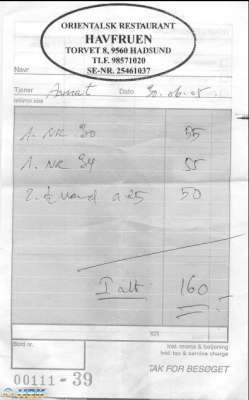 ORIENTALSK RESTAURANT
HAVFRUEN
TORVET 8, 9560 HADSUND
TLF. 98571020
SE-NR. 25461037
Navn
Tjener Dato 30.06.05
1. NR 20 55
1. NR 84 55
2. ½ vand a 25 50
I alt 160
Bord nr.
Inkl. moms & betjening
Incl. tax & service charge
00111 - 39
TAK FOR BESØGET